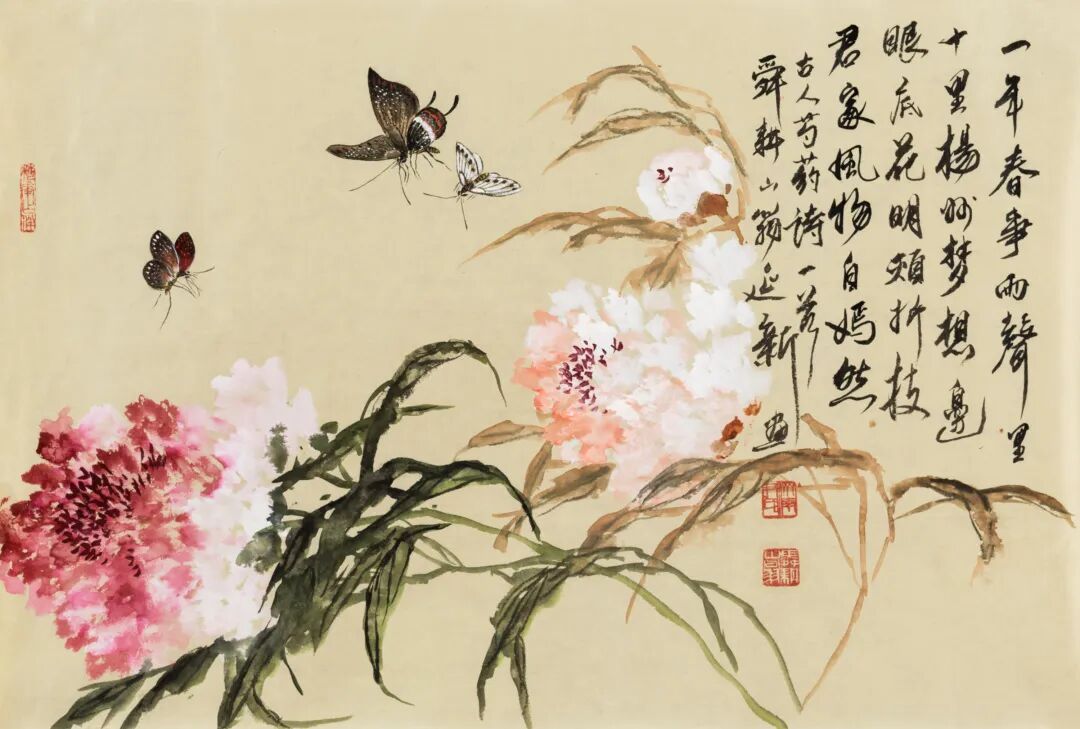 一年春事雨聲里
十里楊州梦想邊
眼底花明頻折枝
君家風物自嫣然
古人芍葯诗一首
舜耕山翁延新画